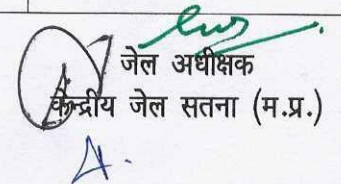 जेल अधीक्षक
केन्द्रीय जेल सतना (म.प्र.)